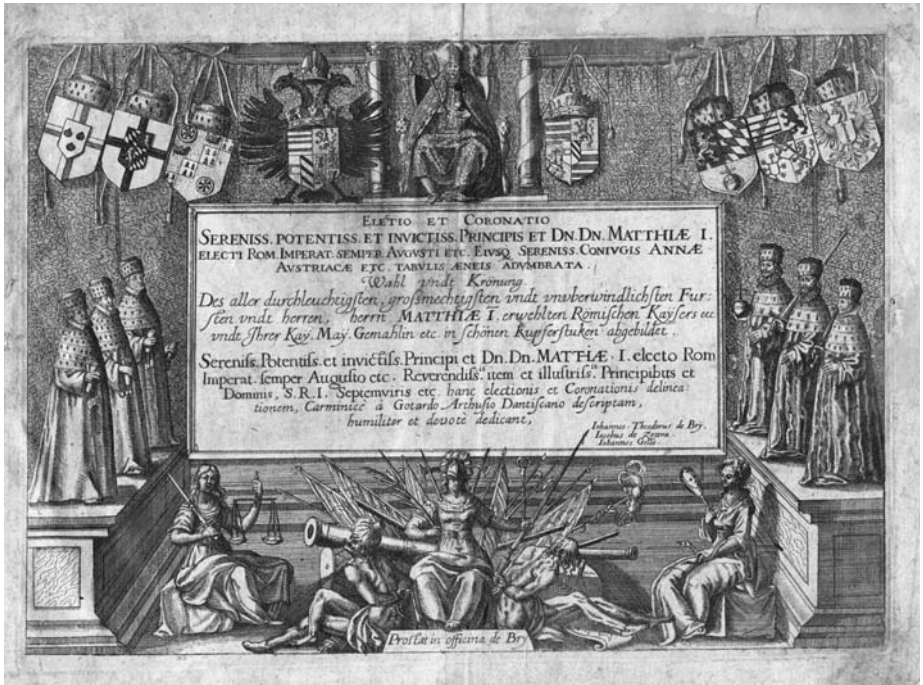 Eletio et Coronatio
Sereniss. Potentiss. et Invictiss. Principis et Dn. Dn. Matthiæ I.
electi Rom. Imperat. semper Avgvsti etc. Eivsq Sereniss. Conivgis Annæ
Avstriacæ etc. tabvlis æneis advmbrata.
Wahl vndt Kronung
Des aller durchleuchtigsten, grosmechtigsten vndt vnvberwindlichsten Fur:
sten vndt herren, herrn MATTHIÆ I. erwehlten Römischen Kaysers etc
vndt Ihrer Kay. May. Gemahlin etc. in schönen Kupferstuken abgebildet.
Sereniss. Potentiss. et invictiss. Principi et Dn. Dn. MATTHIÆ. I. electo Rom
Imperat. semper Augusto etc. Reverendiss. item et illustriss. Principibus et
Dominis, S.R.I. Septemviris etc. hanc electionis et Coronationis delinea:
tionem, Carminice à Gotardo Arthusio Dantiscano descriptam,
humiliter et devotè dedicant,
Iohannes Theodorus de Bry.
Iacobus de Zettra.
Iohannes Gelle.
Prostat in officina de Bry